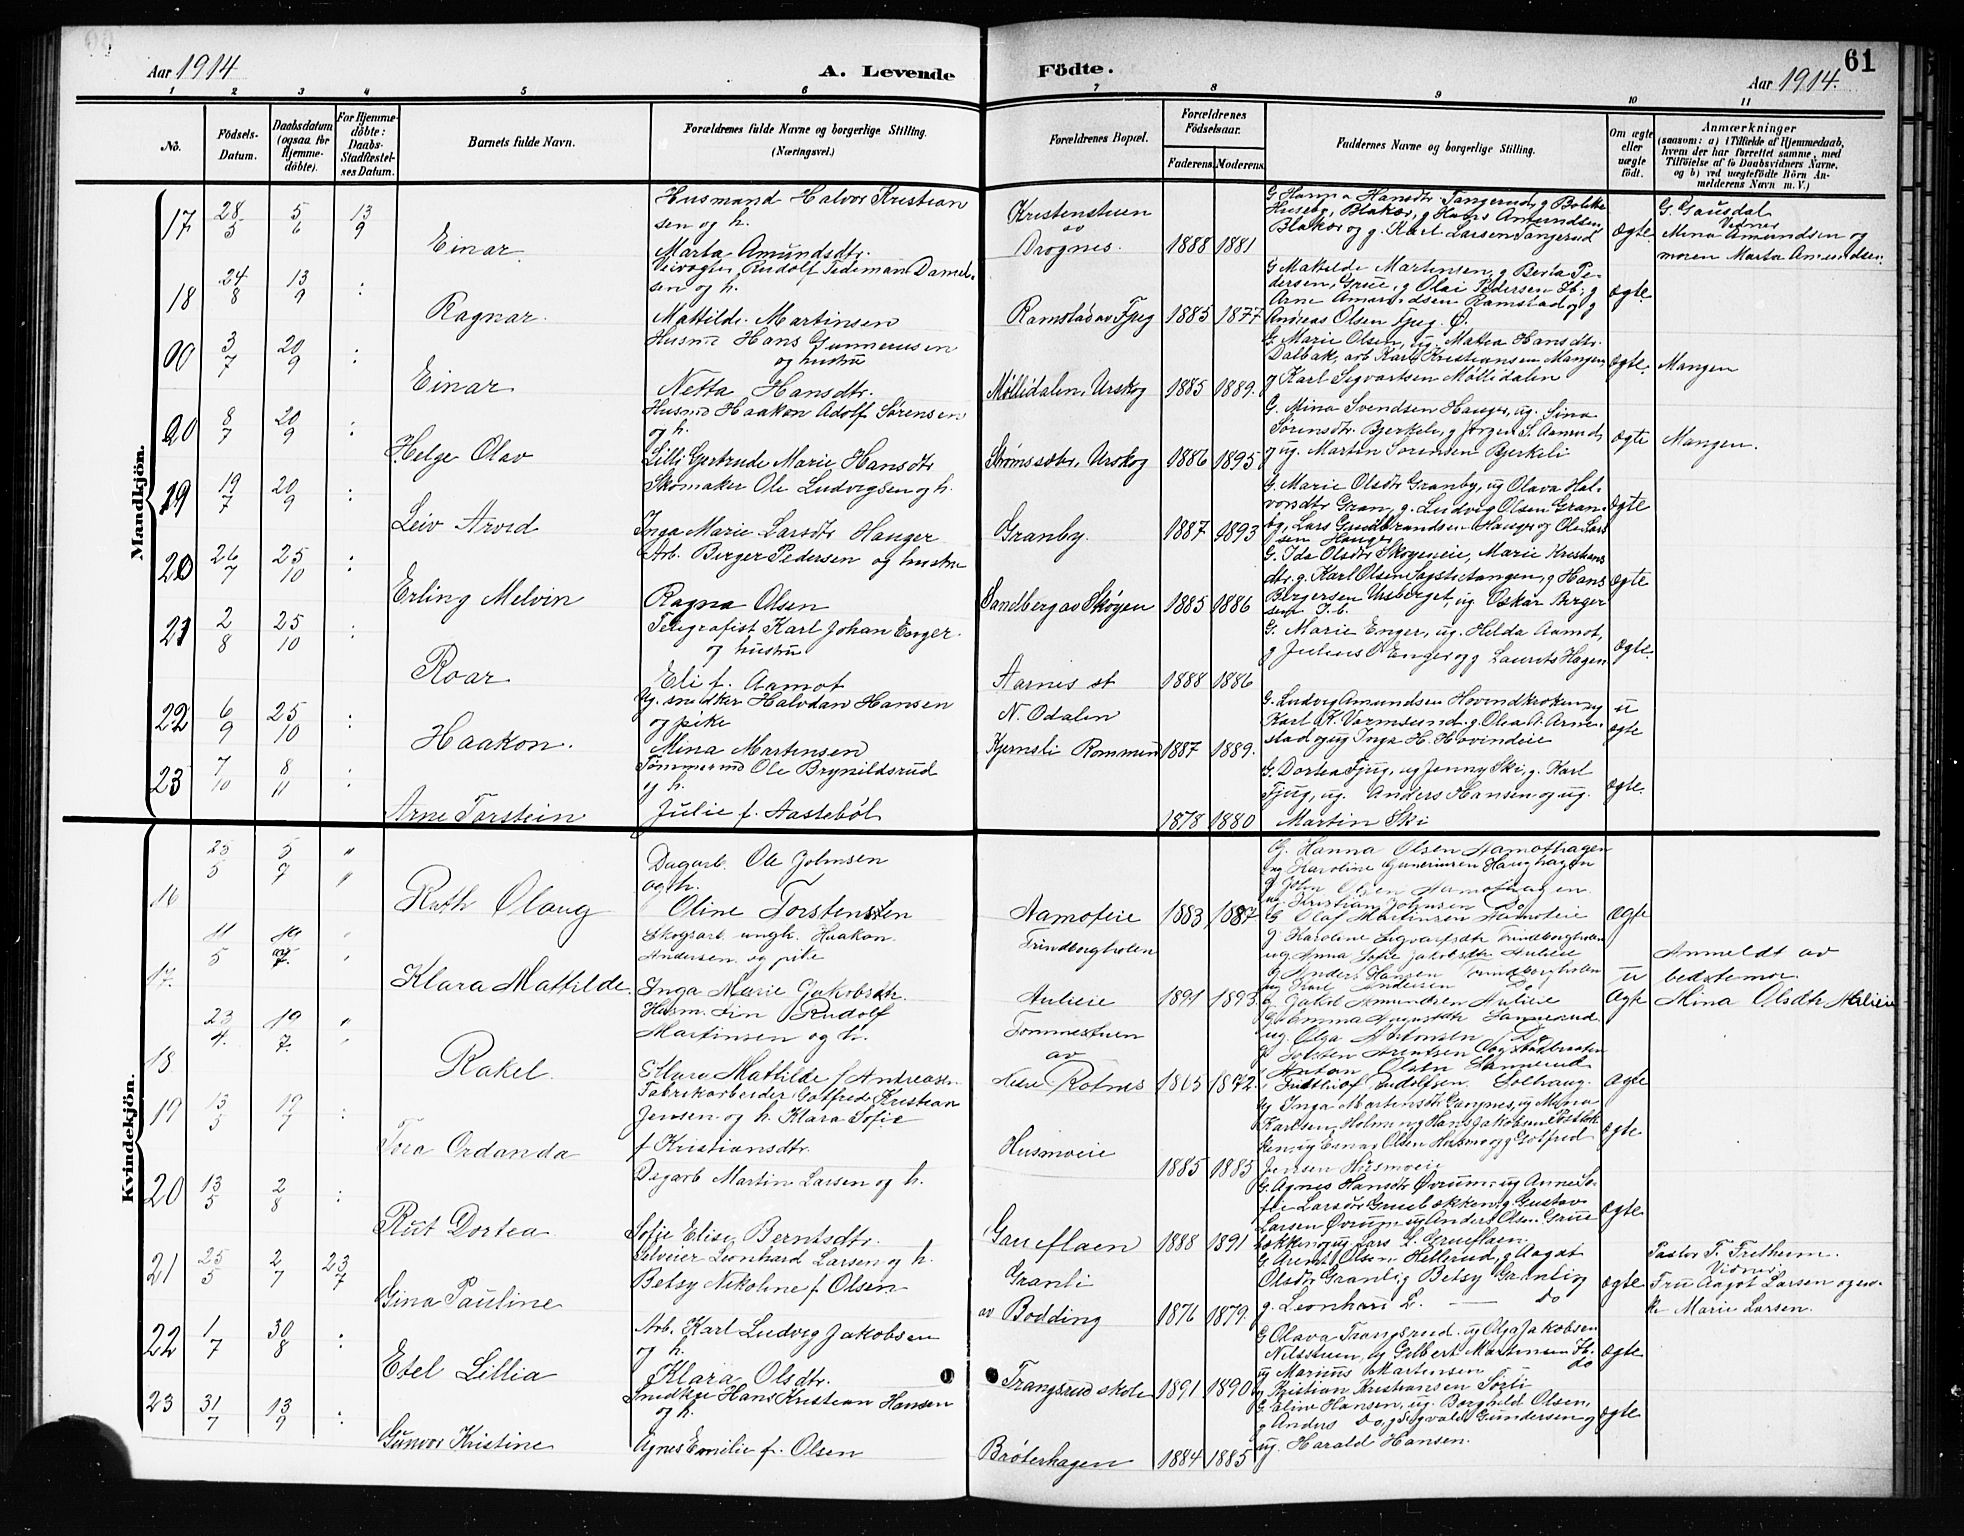 61
Aar 1914
A. Levende
Födte.
Aar 1914.
1 2 3 4 5 6 7 8 9 10 11
No.
Födsels-
Datum.
Daabsdatum
(ogsaa for
Hjemme-
döbte).
For Hjemme-
döbte:
Daabs-
Stadfæstel-
ses Datum.
Barnets fulde Navn.
Forældrenes fulde Navne og borgerlige Stilling.
(Næringsvei.)
Forældrenes Bopæl.
Forældrenes
Födselsaar.
Faderens.
Moderens.
Faddernes Navne og borgerlige Stilling.
Om ægte
eller
uægte
födt.
Anmærkninger
(saasom: a) i Tilfælde af Hjemmedaab,
hvem der har forrettet samme, med
Tilföielse af to Daabsvidners Navne.
og b) ved uægtefödte Börn An-
melderens Navn m. V.)
Mandkjön.
17 28/5 5/6 13/9
Einar
Husmand Halvor Kristian
sen og h.
Marta Amundsdtr.
Kristenstuen
av
Drognes.
1888 1881
Blakør og g. Karl Larsen Tangerud
ægte.
G. Gausdal
Vidner
Mina Amundsen og
moren Marta Amundsen.
18 24/8 13/9 :
Ragnar.
Veivogter Rudolf Tideman Daniel-
sen og h.
Mattilde Martinsen
Ramstad av Fjug
1885 1877
G Matilde Martinsen, g Berta Pe-
dersen, Grue, g Olai Pedersen Ib; g
Arne Amundsen Ramstad og g
Andreas Olsen Fjug. Ø.
ægte.
3/7 20/9 :
Einar
Husmd Hans Gunnerusen
og hustru
Netta Hansdtr.
Møllidalen, Urskog
1885 1889.
G. Marie Olsen, ug. Mattea Hansdtr.
Dalbak, arb Karl Kristiansen Mangen,
g Karl Sigvartsen Møllidalen
ægte.
Mangen
20 8/7 20/9 :
Helge Olav
Husmd Haakon Adolf Sørensen
og h.
Lilli Gertrude Marie Hansdtr
Urskog
1886 1895
G. Mina Svendsen Hauger, ug. Sina
Sørensdtr. Bjerkeli, g Jørgen S. Aamud,
g ug. Martin Sørensen Bjerkeli
ægte
Mangen.
19 19/7 20/9 :
Leiv Arvid
Skomaker Ole Ludvigsen og h.
Inga Marie Larsdtr Hauger
Granby.
1887 1893
G. Marie Olsdtr Granby, ug Olava Hal-
vorsdtr Gran, g. Ludvig Olsen Gran-
by, Lars Gudbrandsen Hauger og Ole Lars
sen Hauger
ægte
20 26/7 25/10 :
Erling Melvin
Arb. Birger Pedersen og hustru
Ragna Olsen
Sandberg av Skøyen
1885 1886
G. Ida Olsdtr Skøgeneie, Marie Kristians
dtr, g. Karl Olsen Sagstetangen, g Hans
Birgersen Ursberget, ug Oskar Birger
sen Ib.
ægte
21 2/8 25/10 :
Roar
Telegrafist Karl Johan Enger.
og hustru
Eli f. Aamot
Aarnes st
1888 1886
G. Marie Enger, ug. Helda Aamot,
g Julius O Enger og g Laurits Hagen
ægte.
22 6/9 25/10 :
Haakon.
Ug. snedker Halvdan Hansen
og pike
Mina Martinsen
N. Odalen
Kjernsli Rommen
1887 1889.
G. Ludvig Amundsen Hovindkroken, ug
Karl K. Vormsund. g. Olea A. Arne-
stad og ug Inga H. Hovindeie
u
ægte
23 7/10 8/11 :
Arne Torstein
Tømmermd Ole Brynildsrud
og h.
Julie f. Aastebøl
1878 1880
G. Dortea Fjug, ug Jenny Ski, g. Karl
Fjug, ug. Anders Hansen og ug.
Martin Ski
ægte.
Kvindekjön.
16 25/5 5/7 "
Ruth Olaug
Dagarb. Ole Johnsen
og h.
Oline Torstensen
Aamoteie
1883 1887
G. Hanna Olsen Aamothagen
ug Karoline Gunerinsen Haughagen
g John Olsen Aamothagen
ug. Kristian Johnsen Do
G Olaf Martinsen Aamoteie
Ægte
17. 11/5 19/7. "
Klara Mathilde.
Skogsarb. ungk. Haakon
Andersen og pike
Inga Marie Jakobsdtr.
Trindborgholen
Aulieie
1891 1893
g. Karoline Sigvartsdtr Trindborgholen
ug Anna Sofie Jakobsdtr Aulieie
g Anders Hansen Trindborgholen
ug Karl Andersen Do
g Jakob Amundsen Aulieie
u
Ægte
Anmeldt av
bedstemor
Mina Olsdtr Aulieie
18 23/4. 19/7. "
Rakel.
Husm. Rudolf
Martinsen og h.
Klara Mathilde f Andreasen
Tommestuen
av
Nedre Rotnes
1865 1872.
G. Emma Augustdtr Sannerud
ug. Olga Antonsen Do
Anton Olsen Sannerud
Fridthiof Rudolfsen Solhaug.
Ægte
19 13/5 19/7 :
Tora Ordanda
Fabrikarbeider Gotfred Kristian
Jensen og h. Klara Sofie
f Kristiansdtr.
Husmoeie
1885 1885
ug Inga Martinsdtr Gangnes, ug Mina
Karlsen, Holm, ug Hans Jakobsen Postbak
ken, ug Einar Olsen Husmo og g Gotfred
Jensen Husmoeie
ægte
20 13/5 2/8 :
Rut Dortea
Dagarb Martin Larsen og h.
Sofie Elise Berntsdtr.
Grueflaen
1888 1891
G. Agnes Hansdtr Øvrum, ug Anne So-
fie Larsdtr Gruebækken, g Gustav
Larsen Øvrum ug Anders Olsen Grue
bækken og ug Lars L. Grueflaen.
ægte
21 25/5 2/7 23/7
Gina Pauline
Selveier Leonhard Larsen og h.
Betsy Nikoline f Olsen
Granli
av Bodding
1876 1879.
G Arent Olsen Hellerud, g Aagot
Olsdtr Granli, g Betsy Granli, og
g. Leonhard L. — do
ægte
Pastor F. Fretheim.
Vidner
Fru Aagot Larsen og en-
ke Marie Larsen.
22 1/7 30/8 :
Etel Lillia
Arb. Karl Ludvig Jakobsen
og h.
Klara Olsdtr.
Trangsrud skole
1891 1890
G Olava Trangsrud, ug Olga Jakobsen
Nilsstuen, ug Gilbert Martinsen Ib.
ug Marius Martinsen do
ug Kristian Kristiansen Sorli
ægte
23 31/7 13/9 :
Gunvor Kristine
Snedker Hans Kristian Hansen
og h.
Agnes Emilie f. Olsen
Brøterhagen
1884 1885
G Eline Hansen, ug. Borghild Olsen,
g Anders Do, g Sigvald Gundersen og
ug. Harald Hansen.
ægte